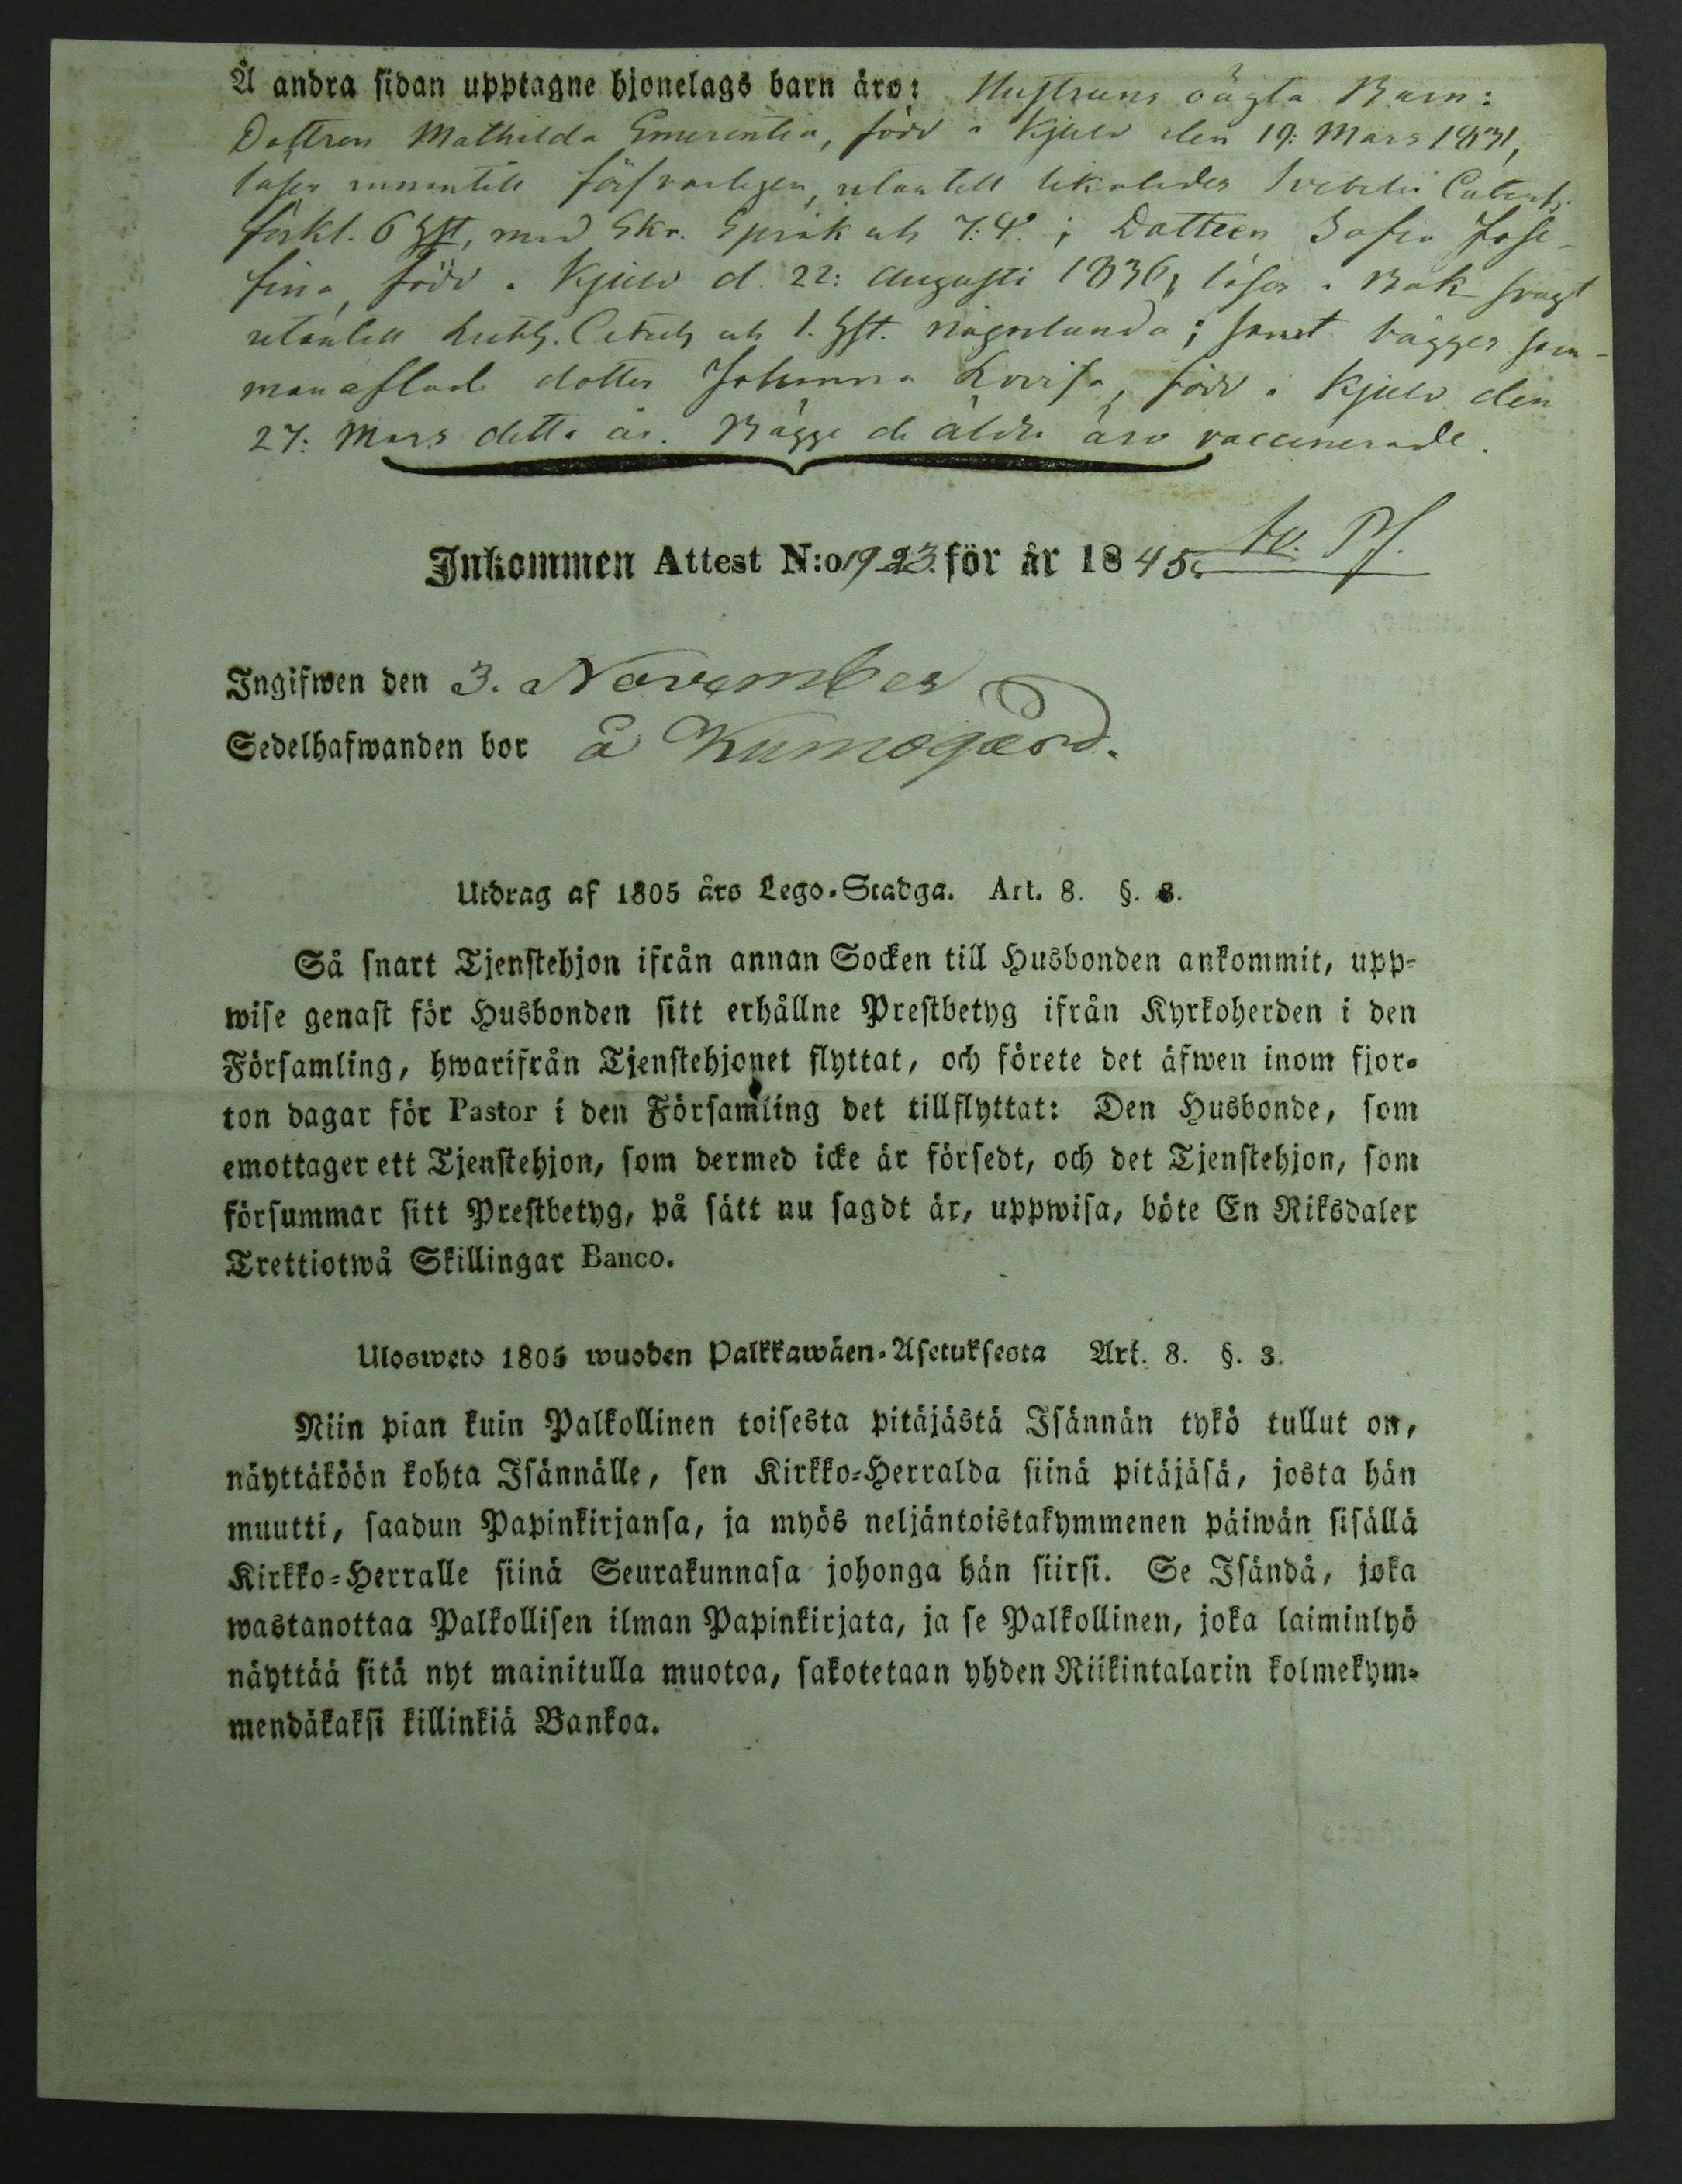 Å andra sidan upptagne hjonelags barn äro: Hustruns oägta Barn:
Dottren Mathilda Emerentia, född i Kjulo den 19: Mars 1831,
läser innantill försvarligen, utantill likaledes Svebelii Catech.
förkl. 6 Hst, med Skr. Språk och 7: ; Dottren Sofia Jose-
fina, född i Kjulo d. 22: Augusti 1836, läser i Bok svagt
utantill Luth. Catech och 1. Hst. någorlunda; samt bägges sam-
manaflade dotter Johanna Lovisa, född i Kjulo den
27: Mars detta år. Bägge de äldre äro vaccinerade.
Inkommen Attest N:o 1923. för år 1845.
Ingifwen den 3. November
Sedelhafwanden bor å Kumogård.
Utdrag af 1805 års Lego-Stadga. Art. 8. §. 3.
Så snart Tjenstehjon ifrån annan Socken till Husbonden ankommit, upp-
wise genast för Husbonden sitt erhållne Prestbetyg ifrån Kyrkoherden i den
Församling, hwarifrån Tjenstehjonet flyttat, och förete det äfwen inom fjor-
ton dagar för Pastor i den Församling det tillflyttat: Den Husbonde, som
emottager ett Tjenstehjon, som dermed icke är försedt, och det Tjenstehjon, som
försummar sitt Prestbetyg, på sätt nu sagdt är, uppwisa, böte En Riksdaler
Trettiotwå Skillingar Banco.
Ulosweto 1805 wuoden Palkkawäen-Asetuksesta Art. 8. §. 3.
Niin pian kuin Palkollinen toisesta pitäjästä Isännän tykö tullut on,
näyttäköön kohta Isännälle, sen Kirkko-Herralda siinä pitäjäsä, josta hän
muutti, saadun Papinkirjansa, ja myös neljäntoistakymmenen päiwän sisällä
Kirkko-Herralle siinä Seurakunnasa johonga hän siirsi. Se Isändä, joka
wastanottaa Palkollisen ilman Papinkirjata, ja se Palkollinen, joka laiminlyö
näyttää sitä nyt mainitulla muotoa, sakotetaan yhden Riikintalarin kolmekym-
mendäkaksi killinkiä Bankoa.